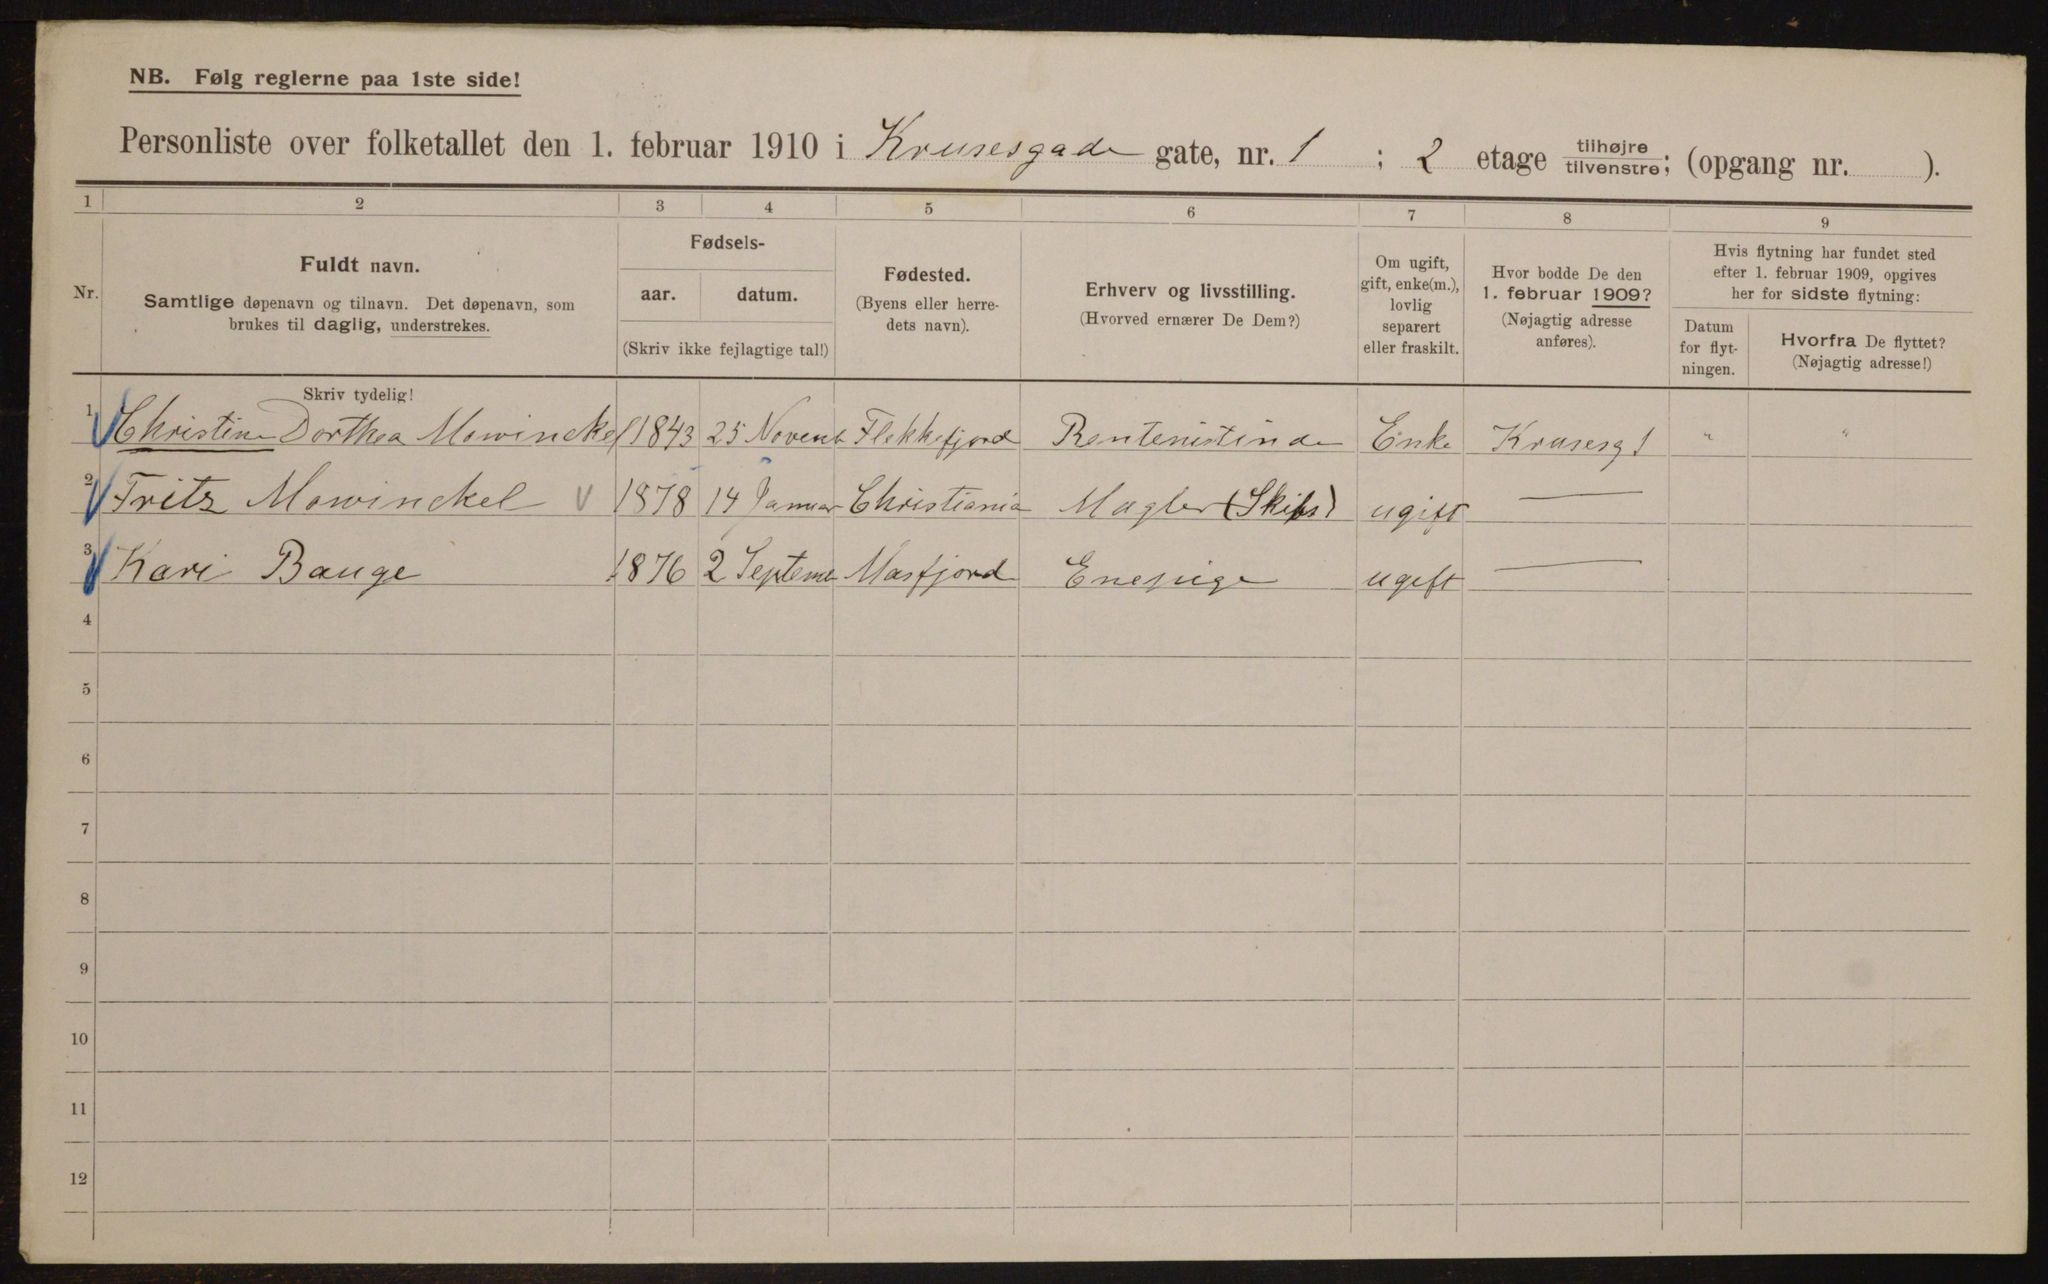 NB. Følg reglerne paa 1ste side!
Personliste over folketallet den 1. februar 1910 i Krusesgade gate, nr. 1 ; 2 etage tilhøjre tilvenstre; (opgang nr. ).
1 2 3 4 5 6 7 8 9
Nr.
Fuldt navn.
Samtlige døpenavn og tilnavn. Det døpenavn, som
brukes til daglig, understrekes.
Fødsels-
aar. datum.
(Skriv ikke fejlagtige tal!)
Fødested.
(Byens eller herre-
dets navn).
Erhverv og livsstilling.
(Hvorved ernærer De Dem?)
Om ugift,
gift, enke(m.),
lovlig
separert
eller fraskilt.
Hvor bodde De den
1. februar 1909?
(Nøjagtig adresse
anføres).
Hvis flytning har fundet sted
efter 1. februar 1909, opgives
her for sidste flytning:
Datum
for flyt-
ningen.
Hvorfra De flyttet?
(Nøjagtig adresse!)
Skriv tydelig!
1 Christine Dorthea Mowinckel 1843 25 Novemb Flekkefjord Rentenistinde Enke Krusesg 1 " "
2 Fritz Mowinckel 1878 14 Januar Christiania Megler (Skibs) ugift —
3 Kari Bauge 1876 2 Septeme Masfjord Enepige ugift —
4
5
6
7
8
9
10
11
12